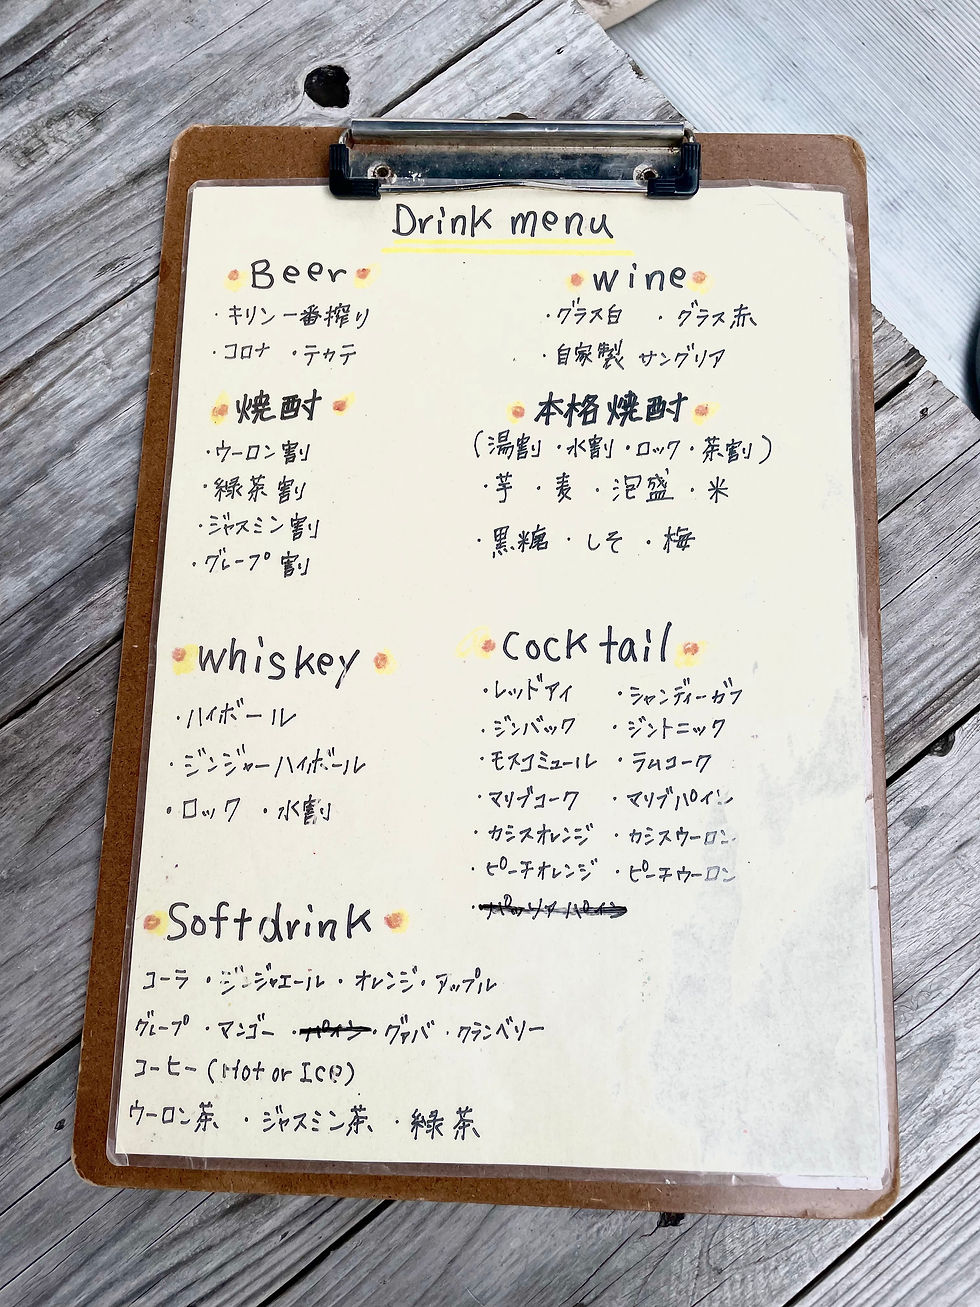 Drink menu
Beer
・キリン一番搾り
・コロナ ・テカテ
wine
・グラス白 ・グラス赤
・自家製 サングリア
焼酎
・ウーロン割
・緑茶割
・ジャスミン割
・グレープ割
本格焼酎
(湯割・水割・ロック・茶割)
・芋 ・麦 ・泡盛 ・米
・黒糖 ・しそ ・梅
whiskey
・ハイボール
・ジンジャーハイボール
・ロック ・水割
Cocktail
・レッドアイ ・シャンディーガフ
・ジンバック ・ジントニック
・モスコミュール ・ラムコーク
・マリブコーク ・マリブパイン
・カシスオレンジ ・カシスウーロン
・ピーチオレンジ ・ピーチウーロン
Softdrink
コーラ ・ジンジャエール ・オレンジ・アップル
グレープ ・マンゴー ・パイン・グァバ ・クランベリー
コーヒー(Hot or Ice)
ウーロン茶 ・ジャスミン茶 ・緑茶